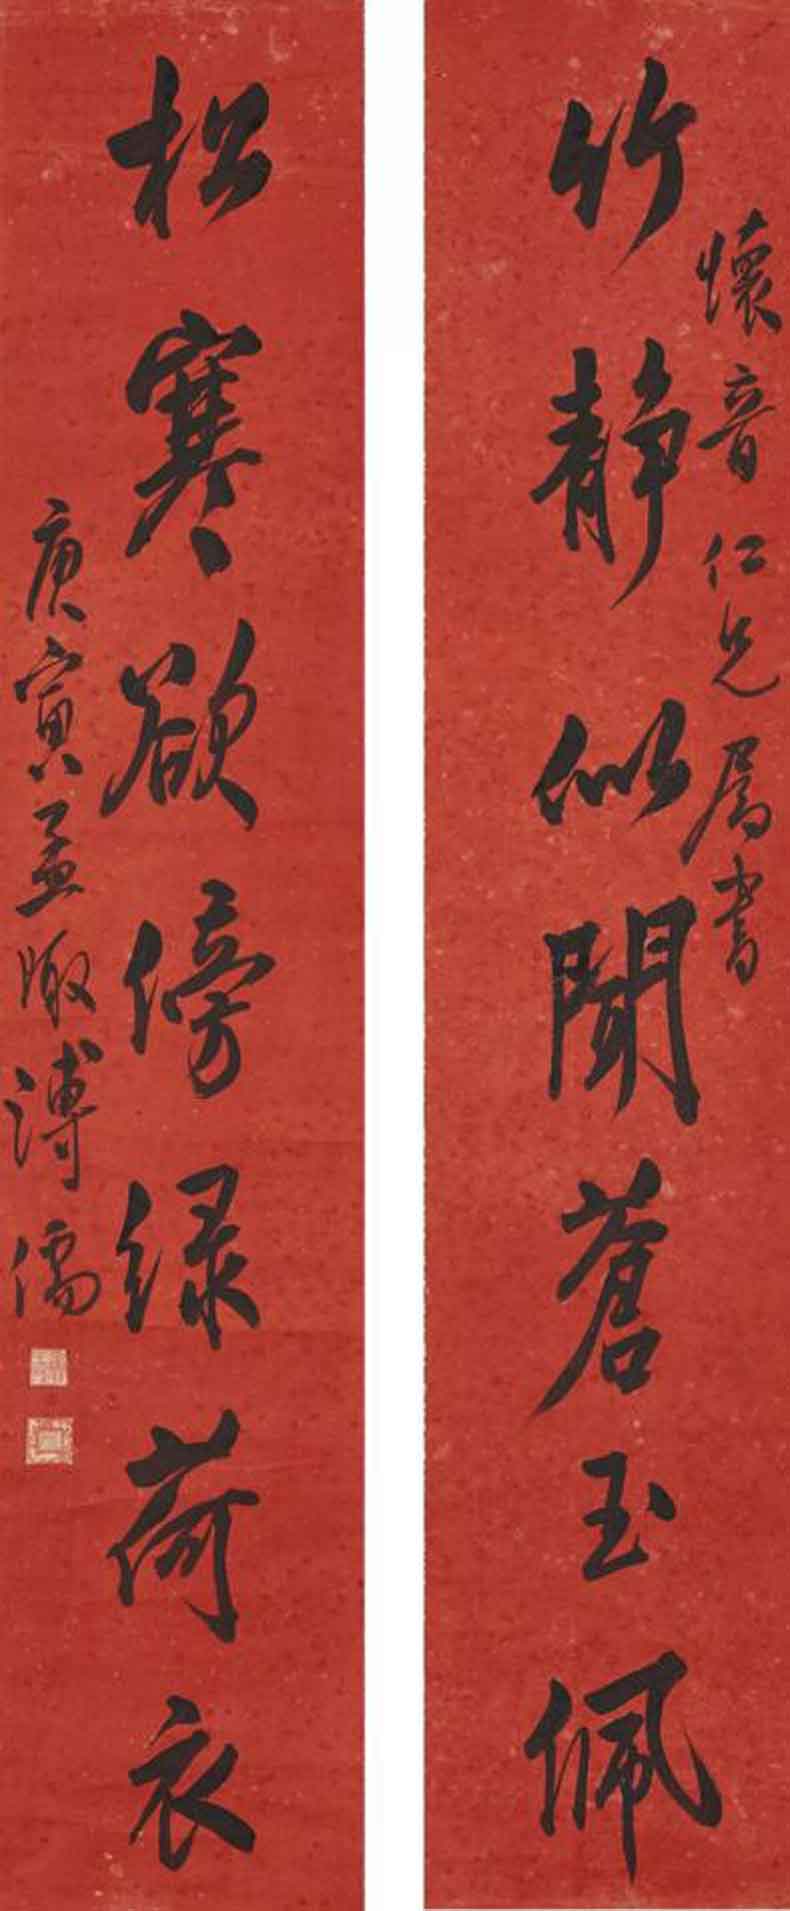 懷音仁兄属書
竹靜似聞蒼玉佩
松寒欲傍綠荷衣
庚寅孟陬溥儒